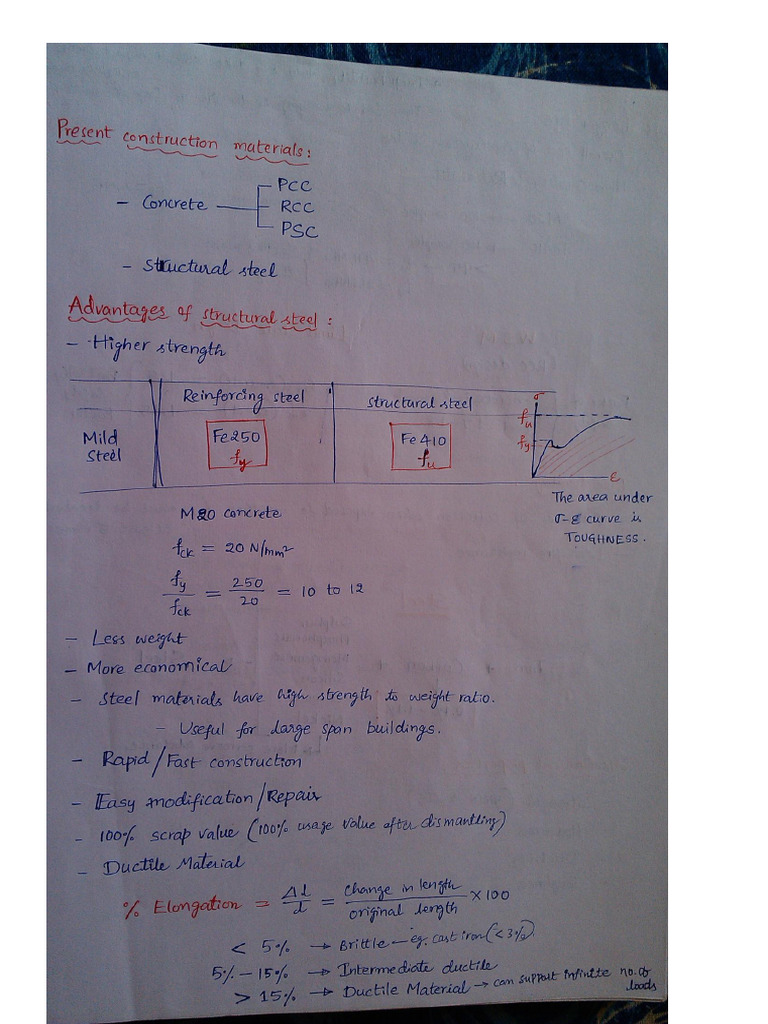 Present construction materials:
- Concrete
PCC
RCC
PSC
- structural steel
Advantages of structural steel:
- Higher strength
Reinforcing steel
structural steel
Mild steel
Fe250
fy
Fe410
fu
σ
fu
fy
ε
The area under
σ-ε curve is
TOUGHNESS.
M20 concrete
fck = 20 N/mm²
fy/fck = 250/20 = 10 to 12
- Less weight
- More economical
- Steel materials have high strength to weight ratio.
- Useful for large span buildings.
- Rapid/Fast construction
- Easy modification/Repair
- 100% scrap value (100% usage value after dismantling)
- Ductile Material
% Elongation = Δl/l = change in length/original length × 100
< 5% → Brittle - eg. cast iron (<3%)
5% - 15% → Intermediate ductile
> 15% → Ductile Material → can support infinite no. of loads